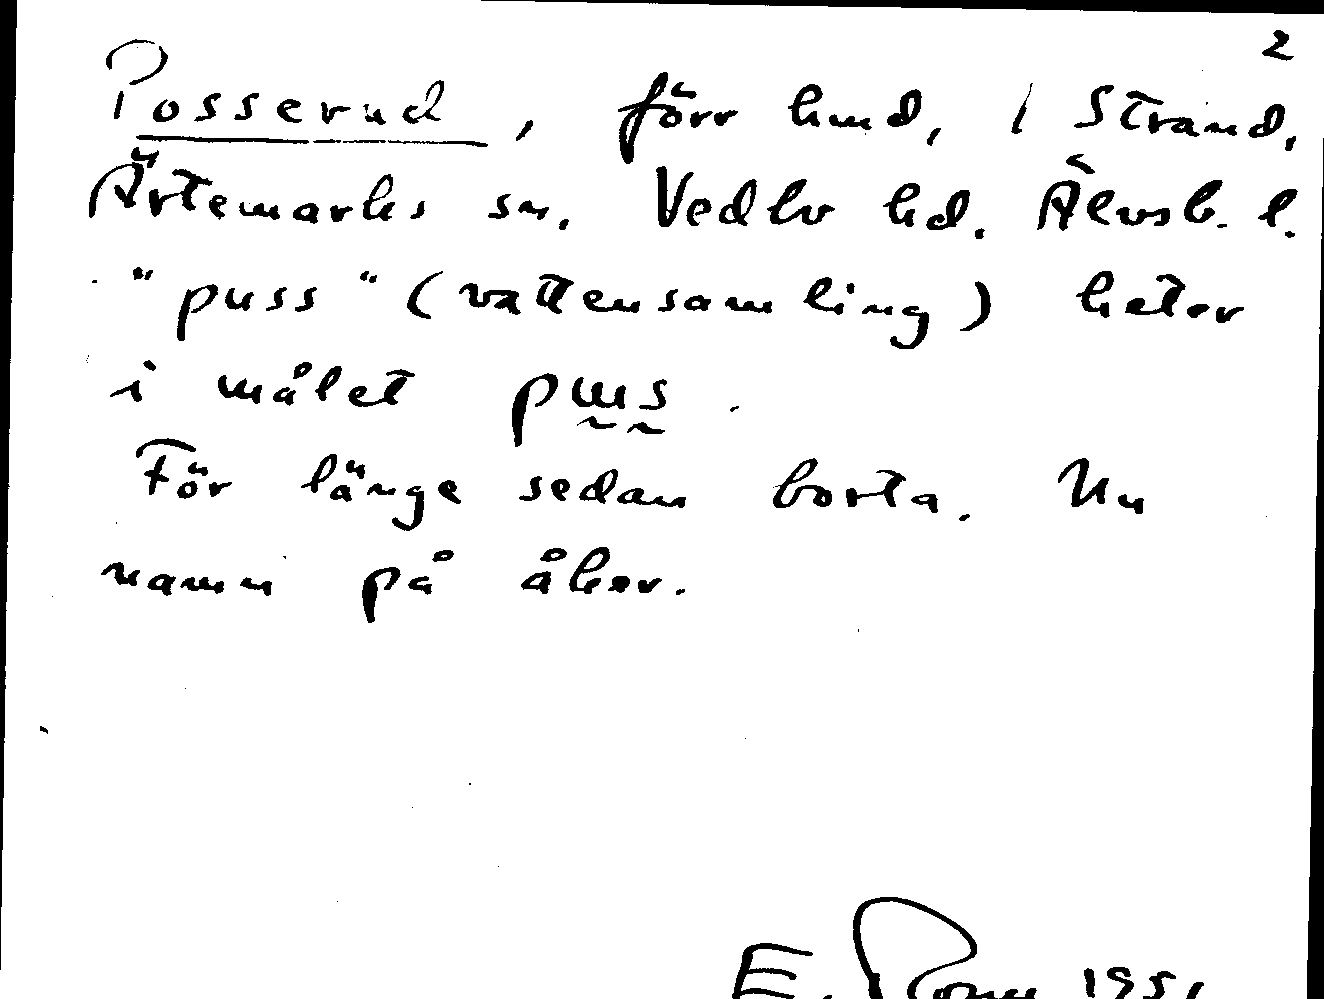 2
Posserud, förr hmd, / Strand,
Ärtemarks sn. Vedbo hd. Älvsb. l.
"puss" (vattensamling) heter
i målet pɯs.
För länge sedan borta. Nu
namn på åker.
E. 1951